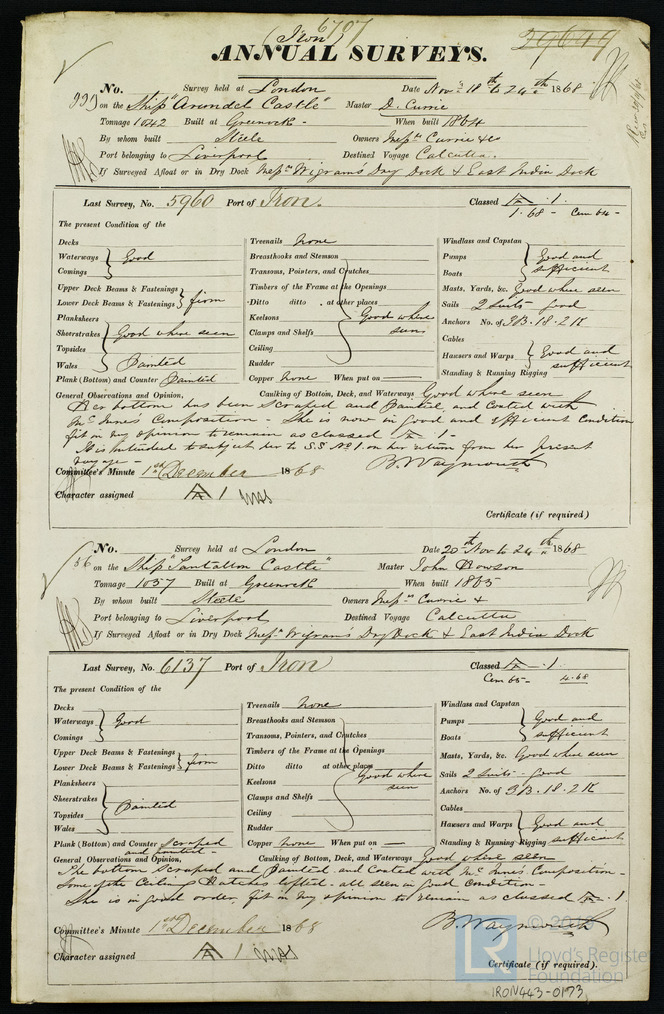 (Iron) 6797
29649
ANNUAL SURVEYS.
No. Survey held at London Date Nov 18th to 24th 1868
on the Ship "Arundel Castle" Master D. Currie
Tonnage 1042 Built at Greenock When built 1864
By whom built Steele Owners Messrs Currie & Co
Port belonging to Liverpool Destined Voyage Calcutta.
If Surveyed Afloat or in Dry Dock Messrs Wigrams Dry Dock & East India Dock
Last Survey, No. 5960 Port of Iron. Classed A 1.
1.68 - Cem 64 -
The present Condition of the
Decks
Waterways
Comings
Good
Upper Deck Beams & Fastenings
Lower Deck Beams & Fastenings
firm
Planksheers
Sheerstrakes
Good where seen
Topsides
Wales
Painted
Plank (Bottom) and Counter Painted
Treenails none
Breasthooks and Stemson
Transoms, Pointers, and Crutches
Timbers of the Frame at the Openings
Ditto ditto at other places
Keelsons
Clamps and Shelfs
Ceiling
Rudder
Good where seen
Copper none When put on —
Windlass and Capstan
Pumps
Boats
Good and sufficient
Masts, Yards, &c. Good where seen
Sails 2 Suits good
Anchors No. of 3B. 1S. 2K
Cables
Hawsers and Warps
Standing & Running Rigging
Good and sufficient
General Observations and Opinion, Caulking of Bottom, Deck, and Waterways Good where seen
Her bottom has been scraped and Painted and Coated with
McInnes Composition - She is now in good and efficient Condition
fit in my opinion to remain as classed A 1 -
It is intended to subject her to S.S. No 1. on her return from her present
voyage -
B. Waymouth
Committee's Minute 1st December 1868
Character assigned A 1
Certificate (if required)
No. Survey held at London Date 20th Nov to 24th 1868
86 on the Ship "Tantallon Castle" Master John Rowson
Tonnage 1057 Built at Greenock When built 1865
By whom built Steele Owners Messrs Currie &
Port belonging to Liverpool Destined Voyage Calcutta
If Surveyed Afloat or in Dry Dock Messrs Wigrams Dry Dock & East India Dock
Last Survey, No. 6137 Port of Iron Classed A 1.
Cem 65 - 4.68
The present Condition of the
Decks
Waterways
Comings
Good
Upper Deck Beams & Fastenings
Lower Deck Beams & Fastenings
firm
Planksheers
Sheerstrakes
Topsides
Wales
Painted
Plank (Bottom) and Counter Scraped
and painted -
Treenails none
Breasthooks and Stemson
Transoms, Pointers, and Crutches
Timbers of the Frame at the Openings
Ditto ditto at other places
Keelsons
Clamps and Shelfs
Ceiling
Rudder
Good where seen
Copper none When put on —
Windlass and Capstan
Pumps
Boats
Good and sufficient
Masts, Yards, &c. Good where seen
Sails 2 Suits - good
Anchors No. of 3B. 1S. 2K
Cables
Hawsers and Warps
Standing & Running Rigging
Good and sufficient
General Observations and Opinion, Caulking of Bottom, Deck, and Waterways Good where seen
The bottom Scraped and Painted and Coated with McInnes Composition
Some of the Ceiling Hatches lifted - all seen in good condition -
She is in good order, fit in my opinion to remain as classed A 1
B. Waymouth
Committee's Minute 1st December 1868
Character assigned A 1
Certificate (if required).
Lloyd's Register
Foundation
IRON443-0173